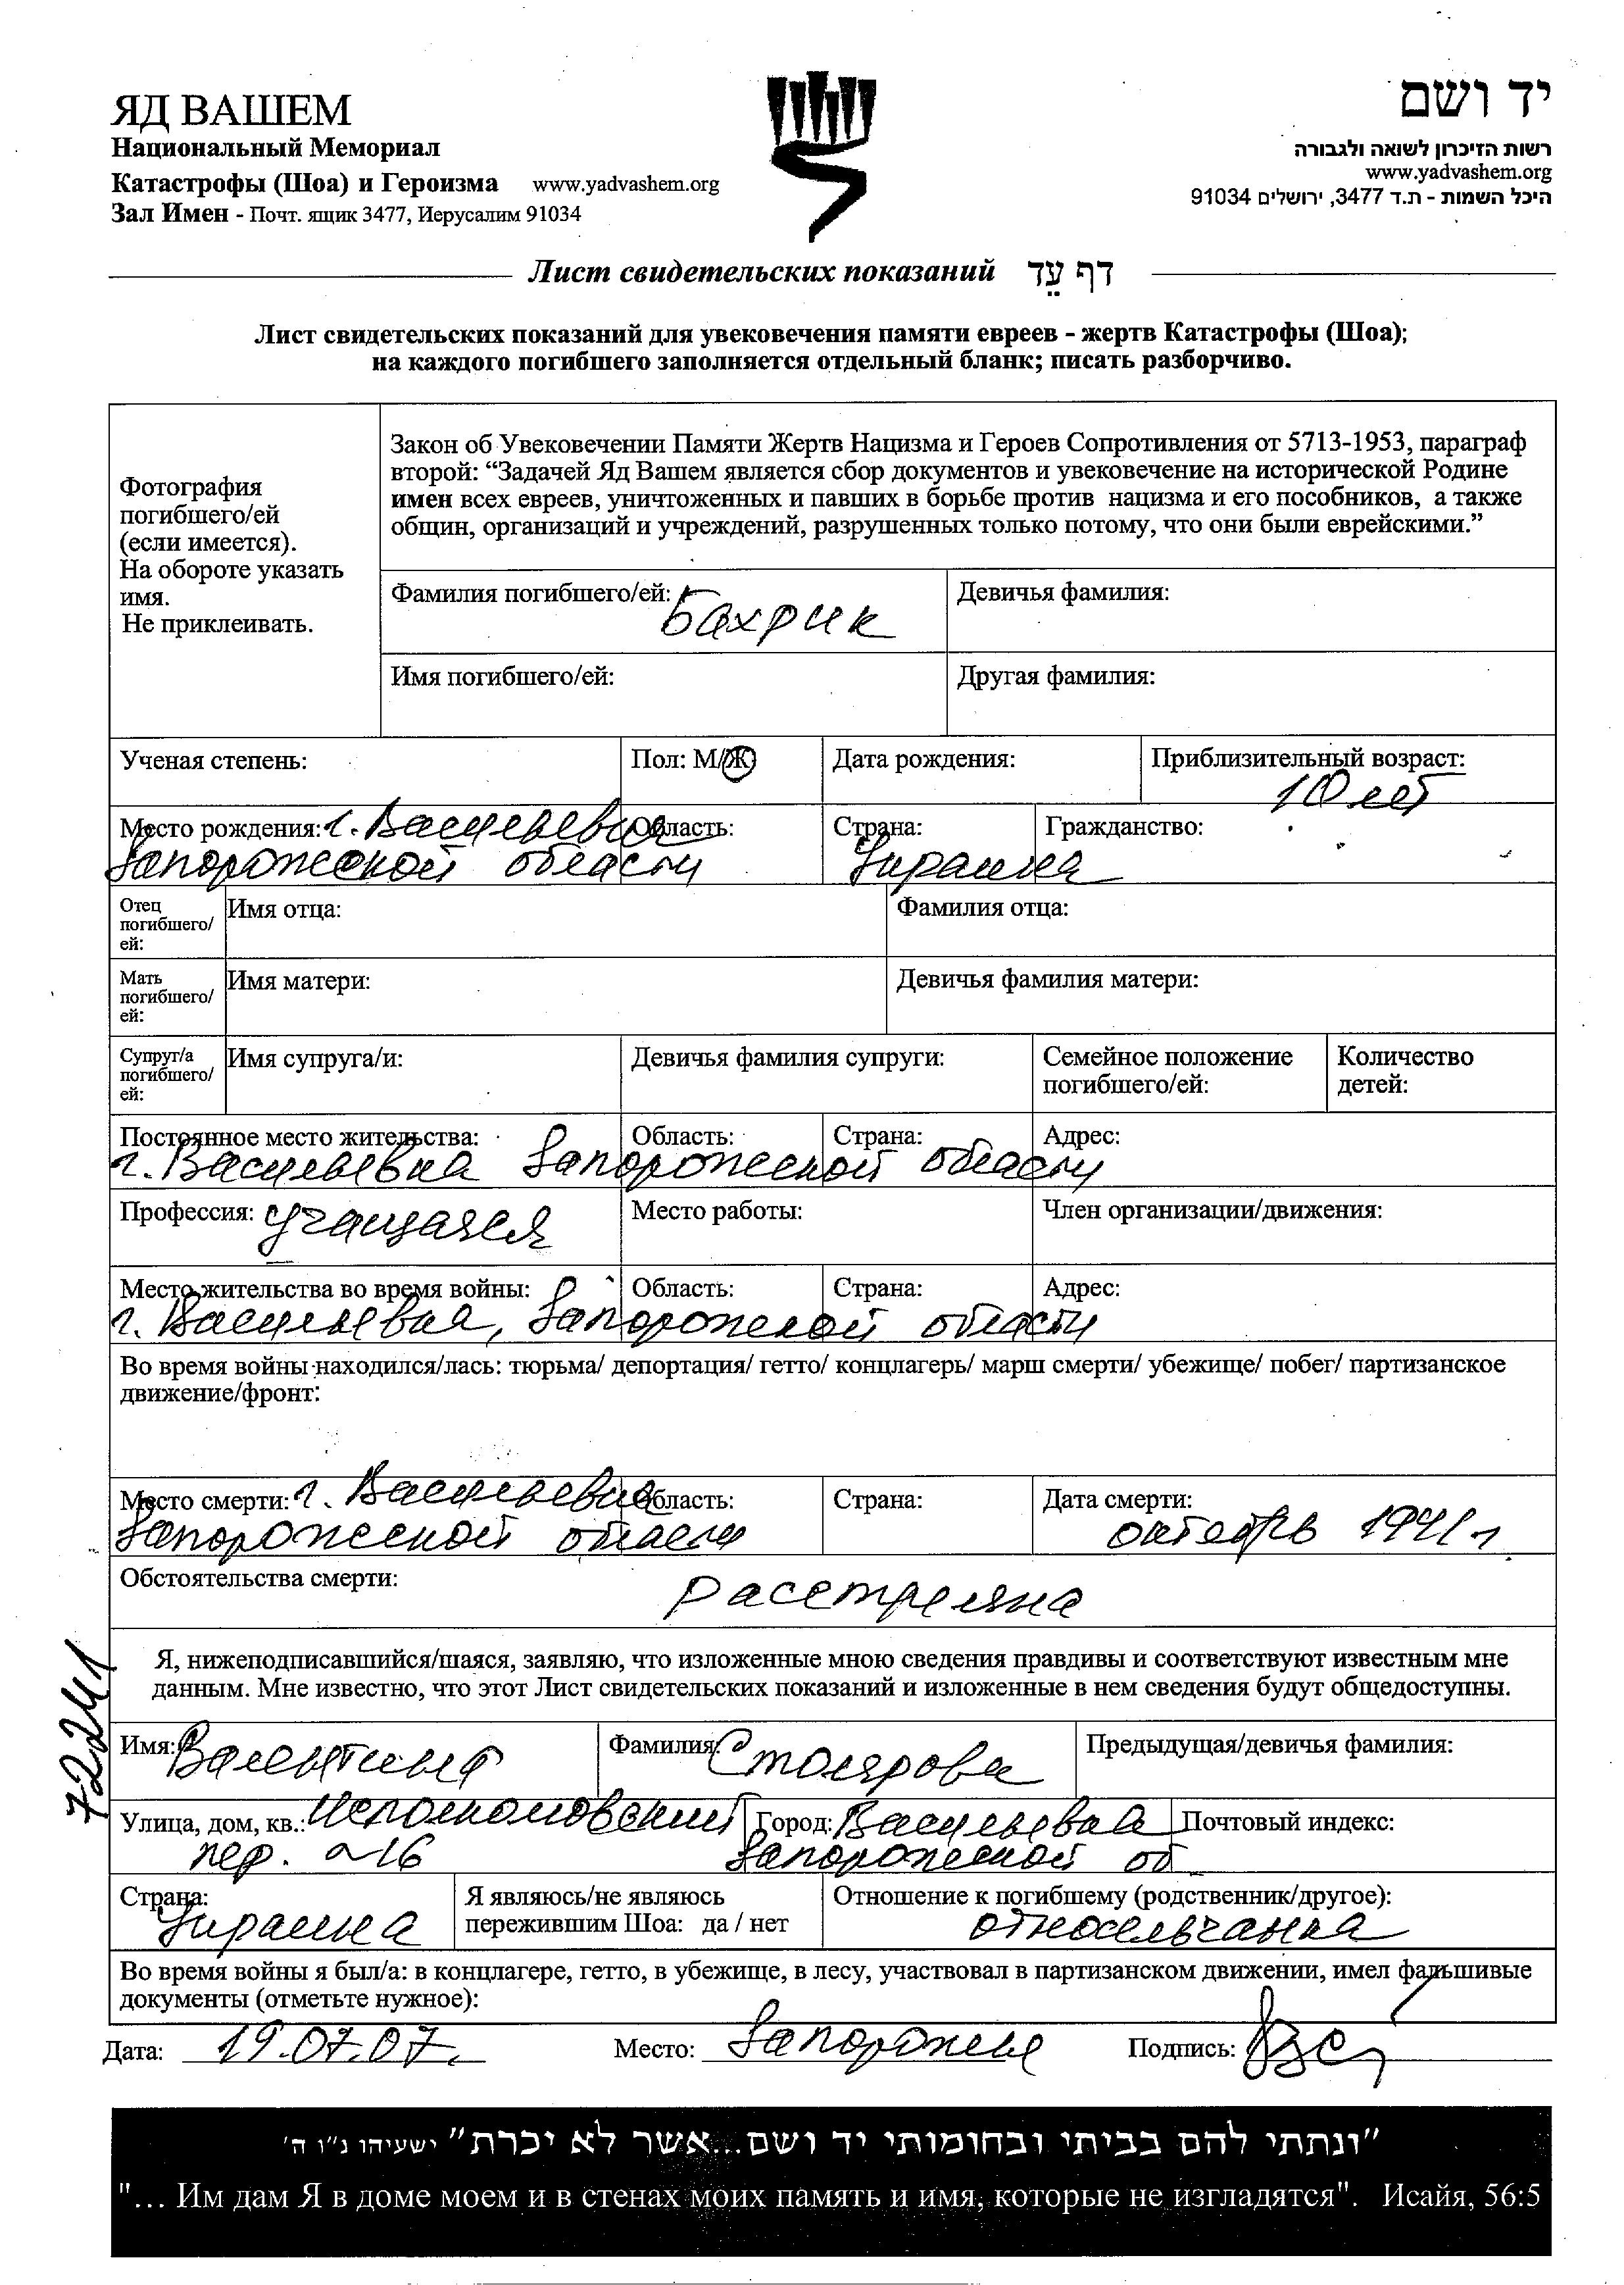 ЯД ВАШЕМ
Национальный Мемориал
Катастрофы (Шоа) и Героизма www.yadvashem.org
Зал Имен - Почт. ящик 3477, Иерусалим 91034
יד ושם
רשות הזיכרון לשואה ולגבורה
www.yadvashem.org
היכל השמות - ת.ד 3477, ירושלים 91034
Лист свидетельских показаний דף עֵד
Лист свидетельских показаний для увековечения памяти евреев - жертв Катастрофы (Шоа);
на каждого погибшего заполняется отдельный бланк; писать разборчиво.
Фотография
погибшего/ей
(если имеется).
На обороте указать
имя.
Не приклеивать.
Закон об Увековечении Памяти Жертв Нацизма и Героев Сопротивления от 5713-1953, параграф
второй: “Задачей Яд Вашем является сбор документов и увековечение на исторической Родине
имен всех евреев, уничтоженных и павших в борьбе против нацизма и его пособников, а также
общин, организаций и учреждений, разрушенных только потому, что они были еврейскими.”
Фамилия погибшего/ей: Бахрик Девичья фамилия:
Имя погибшего/ей: Другая фамилия:
Ученая степень: Пол: М/Ж Дата рождения: Приблизительный возраст:
10 лет
Место рождения: г. Васильевка Область: Страна: Гражданство:
Запорожской области Украина
Отец
погибшего/
ей:
Имя отца: Фамилия отца:
Мать
погибшего/
ей:
Имя матери: Девичья фамилия матери:
Супруг/а
погибшего/
ей:
Имя супруга/и: Девичья фамилия супруги: Семейное положение
погибшего/ей:
Количество
детей:
Постоянное место жительства: Область: Страна: Адрес:
г. Васильевка Запорожской области
Профессия: учащаяся Место работы: Член организации/движения:
Место жительства во время войны: Область: Страна: Адрес:
г. Васильевка, Запорожской области
Во время войны находился/лась: тюрьма/ депортация/ гетто/ концлагерь/ марш смерти/ убежище/ побег/ партизанское
движение/фронт:
Место смерти: г. Васильевка Область: Страна: Дата смерти:
Запорожской области октябрь 1941 г.
Обстоятельства смерти: расстреляна
Я, нижеподписавшийся/шаяся, заявляю, что изложенные мною сведения правдивы и соответствуют известным мне
данным. Мне известно, что этот Лист свидетельских показаний и изложенные в нем сведения будут общедоступны.
72241
Имя: Валентина Фамилия: Столярова Предыдущая/девичья фамилия:
Улица, дом, кв.: Исполкомовский Город: Васильевка Почтовый индекс:
пер. 16 Запорожской об
Страна: Украина
Я являюсь/не являюсь
пережившим Шоа: да / нет
Отношение к погибшему (родственник/другое):
односельчанка
Во время войны я был/а: в концлагере, гетто, в убежище, в лесу, участвовал в партизанском движении, имел фальшивые
документы (отметьте нужное):
Дата: 19.07.07. Место: Запорожье Подпись:
"ונתתי להם בביתי ובחומותי יד ושם...אשר לא יכרת" ישעיהו נ"ו ה'
"... Им дам Я в доме моем и в стенах моих память и имя, которые не изгладятся". Исайя, 56:5